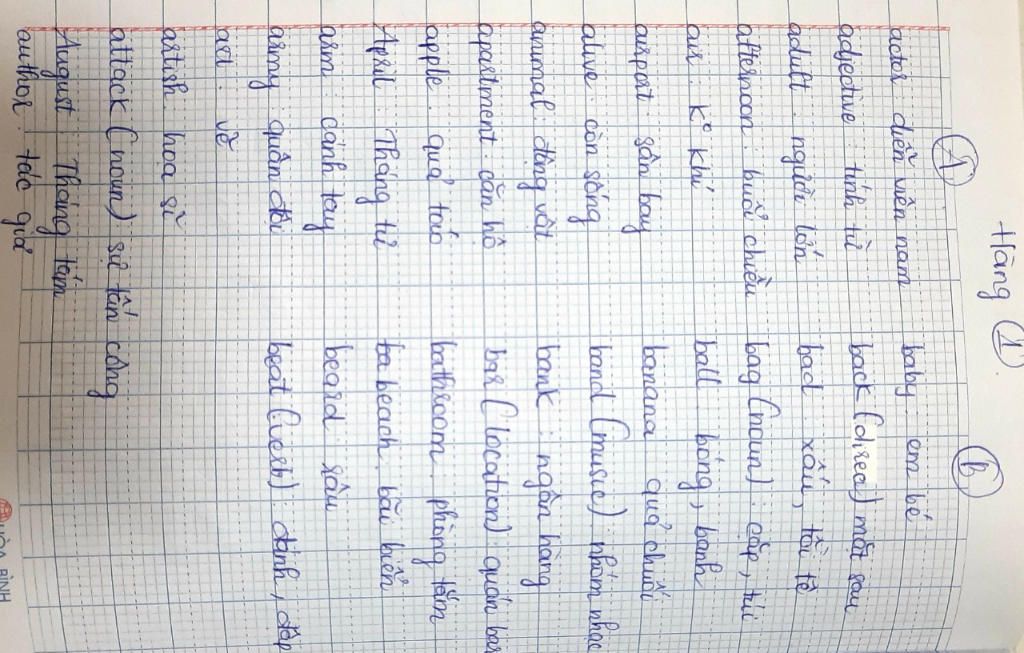 Hàng 1
A
actor diễn viên nam
adjective tính từ
adult người lớn
afternoon buổi chiều
air k° khí
airport sân bay
alive còn sống
animal: động vật
apartment căn hộ
apple quả táo
April Tháng tư
arm cánh tay
army quân đội
art vẽ
artish hoa sĩ
attack (noun) sự tấn công
August Tháng tám
author tác giả
B
baby em bé
back (direa) mặt sau
bad xấu, tồi tệ
bag (noun): cặp, túi
ball bóng, banh
banana quả chuối
band (music) nhóm nhạc
bank ngân hàng
bar (location) quán bar
bathroom phòng tắm
ba beach bãi biển
beard râu
beat (verb): đánh, đập
HÒA BÌNH